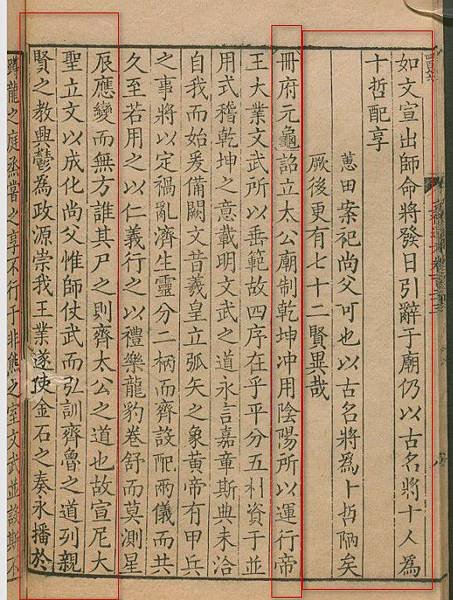 如文宣出師命將發日引辭于廟仍以古名將十人為
十哲配享
蕙田案祀尚父可也以古名將為十哲陋矣
厥後更有七十二賢異哉
冊府元龜詔立太公廟制乾坤冲用陰陽所以運行帝
王大業文武所以垂範故四序在乎平分五材資于並
用式稽乾坤之意載明文武之道永言嘉章斯典未洽
自我而始爰備闕文昔羲皇立弧矢之象黄帝有甲兵
之事將以定禍亂濟生靈分二柄而齊設配兩儀而共
久至若用之以仁義行之以禮樂龍豹卷舒而莫測星
辰應變而無方誰其尸之則齊太公之道也故宣尼大
聖立文以成化尚父惟師仗武而弘訓齊魯之道列親
賢之教興鬱為政源崇我王業遂使金石之奏永播於
蹲龍之庭烝嘗之享不行于非熊之室文武並設斯不